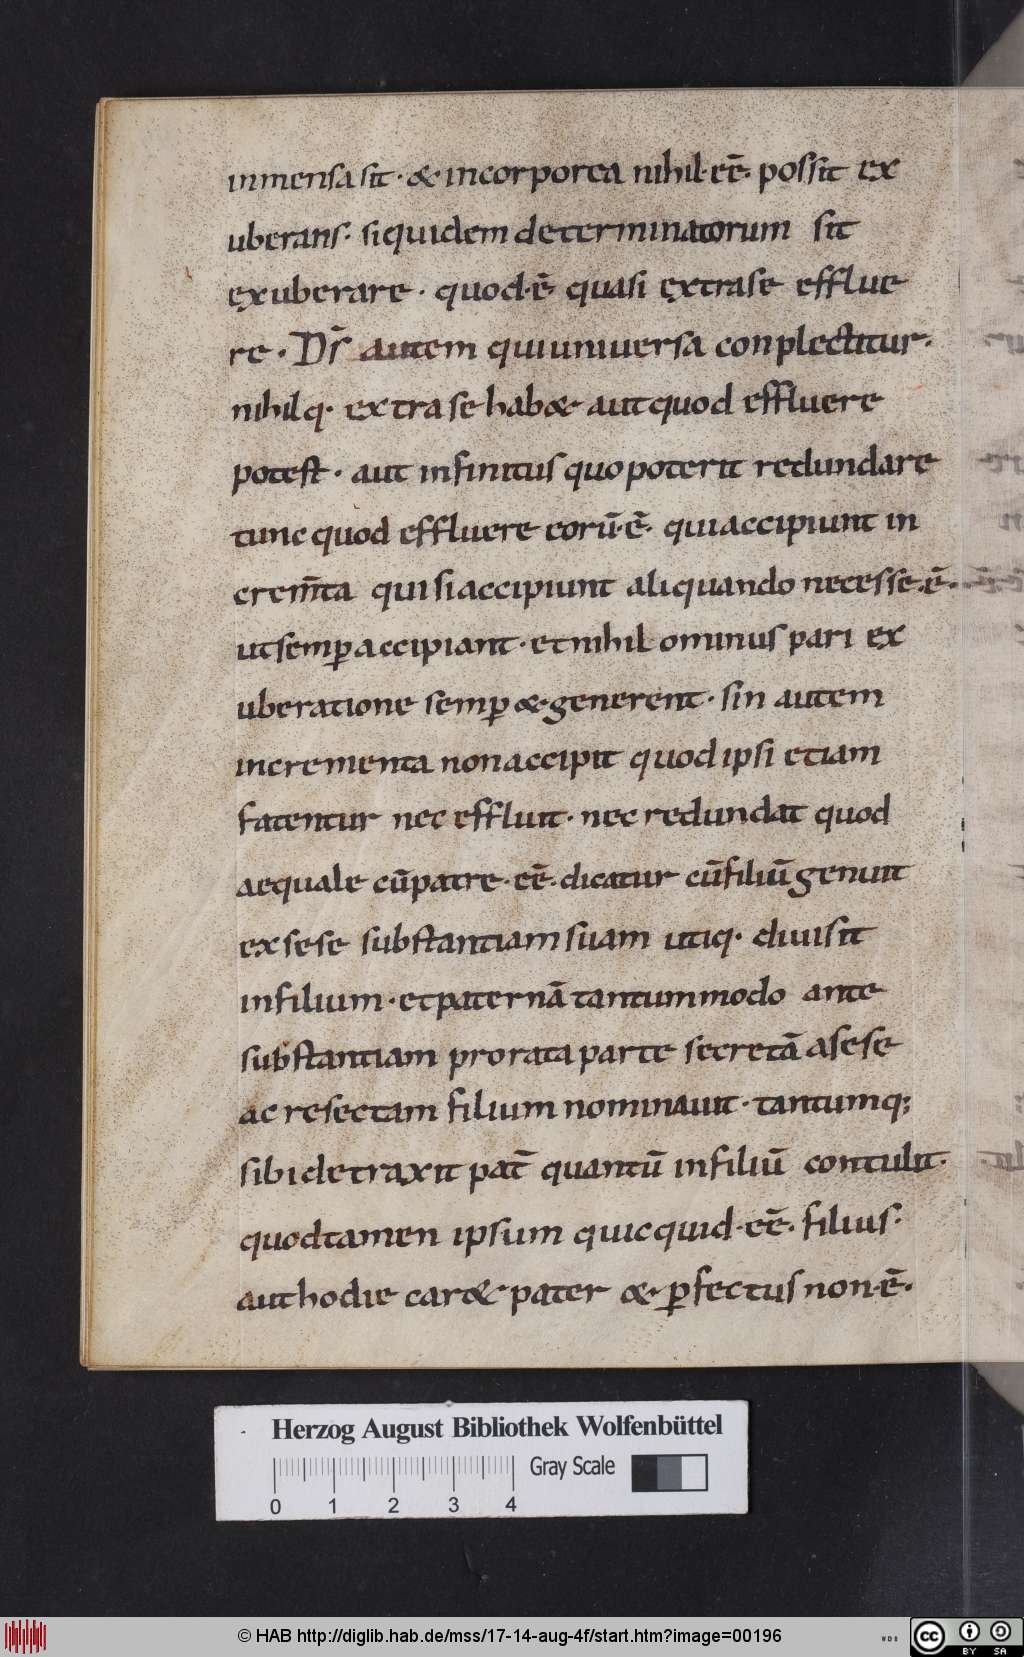 inmensa sit · & · incorporea nihil · eē · possit ex
uberans · siquidem determinatorum sit
exuberare · quod · ē · quasi extra se efflue
re · Ds̄ autem qui universa conplectitur ·
nihilq · extra se hab& aut quod effluere
potest · aut infinitus quo poterit redundare
tunc quod effluere eorū · ē · qui accipiunt in
crem̄ta qui si accipiunt aliquando necesse · ē ·
ut semꝑ accipiant · et nihil ominus pari ex
uberatione semꝑ & · generent · sin autem
incrementa non accipit quod ipsi etiam
fatentur nec effluit · nec redundat quod
aequale cū patre · eē · dicatur cū filiū genuit
ex sese substantiam suam utiq · divisit
in filium · et paternā tantummodo ante
substantiam pro rata parte secretā a sese
ac resectam filium nominavit · tantumq;
sibi detraxit pat̄ quantū in filiū contulit ·
quod tamen ipsum quicquid · eē · filius ·
aut hodie car& pater & · ꝑfectus non · ē ·
Herzog August Bibliothek Wolfenbüttel
Gray Scale
0 1 2 3 4
© HAB http://diglib.hab.de/mss/17-14-aug-4f/start.htm?image=00196
WDB
cc BY SA